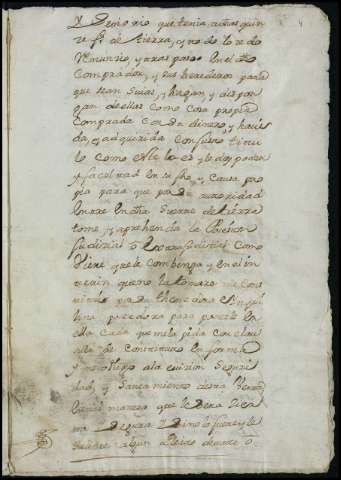 y señorio que tenia a dhas quin
se f.s de tierra, y no do lo sedo
Renuncio, y traspaso en el dho
Comprador, y sus herederos para
que sean suias, y hagan, y dispon
gan de ellas como cosa propia
Comprada con su dinero, y havi
da, y adquirida con justo titu
lo como este lo es, y le doy poder
y facultad en su fho, y causa pro
pia para que por su autoridad
entre en dha suerte de tierra
tome, y aprehenda la Posesion
judicial o extrajudicial como
viere que le combenga y en el in
terin que no la tomare me cons
tituio por su thenedor Inqui
lino poseedor para ponerle en
ella cada que me la pida con clau
sula de constituto en forma
y me obligo a la evicion seguri
dad, y saneamiento de esta Venta
en tal manera que le sera cier
ta segura y si no lo fuere, y le
saliere algun Pleito devate o